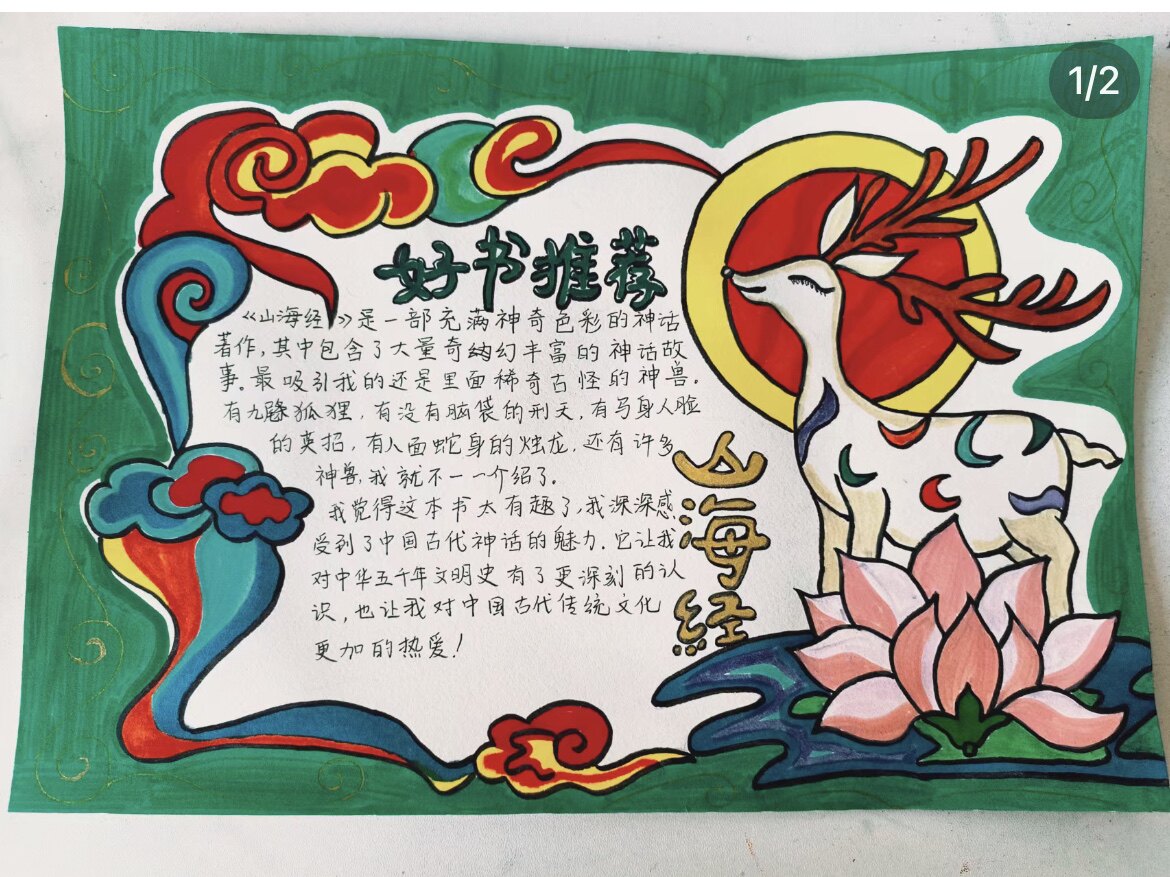 1/2
好书推荐
《山海经》是一部充满神奇色彩的神话
著作,其中包含了大量奇幻丰富的神话故
事。最吸引我的还是里面稀奇古怪的神兽。
有九狐狸,有没有脑袋的刑天,有马身人脸
的英招,有人面蛇身的烛龙,还有许多
神兽,我就不一一介绍了。
我觉得这本书太有趣了,我深深感
受到了中国古代神话的魅力.它让我
对中华五千年文明史有了更深刻的认
识,也让我对中国古代传统文化
更加的热爱!
山海经